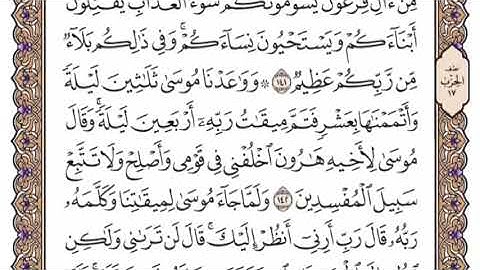 مِّنْ ءَالِ فِرْعَوْنَ يَسُومُونَكُمْ سُوٓءَ ٱلْعَذَابِ يُقَتِّلُونَ
أَبْنَآءَكُمْ وَيَسْتَحْيُونَ نِسَآءَكُمْ ۚ وَفِى ذَٰلِكُم بَلَآءٌ
مِّن رَّبِّكُمْ عَظِيمٌ ١٤١ ۞ وَوَٰعَدْنَا مُوسَىٰ ثَلَٰثِينَ لَيْلَةً
وَأَتْمَمْنَٰهَا بِعَشْرٍ فَتَمَّ مِيقَٰتُ رَبِّهِۦٓ أَرْبَعِينَ لَيْلَةً ۚ وَقَالَ
مُوسَىٰ لِأَخِيهِ هَٰرُونَ ٱخْلُفْنِى فِى قَوْمِى وَأَصْلِحْ وَلَا تَتَّبِعْ
سَبِيلَ ٱلْمُفْسِدِينَ ١٤٢ وَلَمَّا جَآءَ مُوسَىٰ لِمِيقَٰتِنَا وَكَلَّمَهُۥ
رَبُّهُۥ قَالَ رَبِّ أَرِنِىٓ أَنظُرْ إِلَيْكَ ۚ قَالَ لَن تَرَىٰنِى وَلَٰكِنِ
نصف
الحزب
١٧